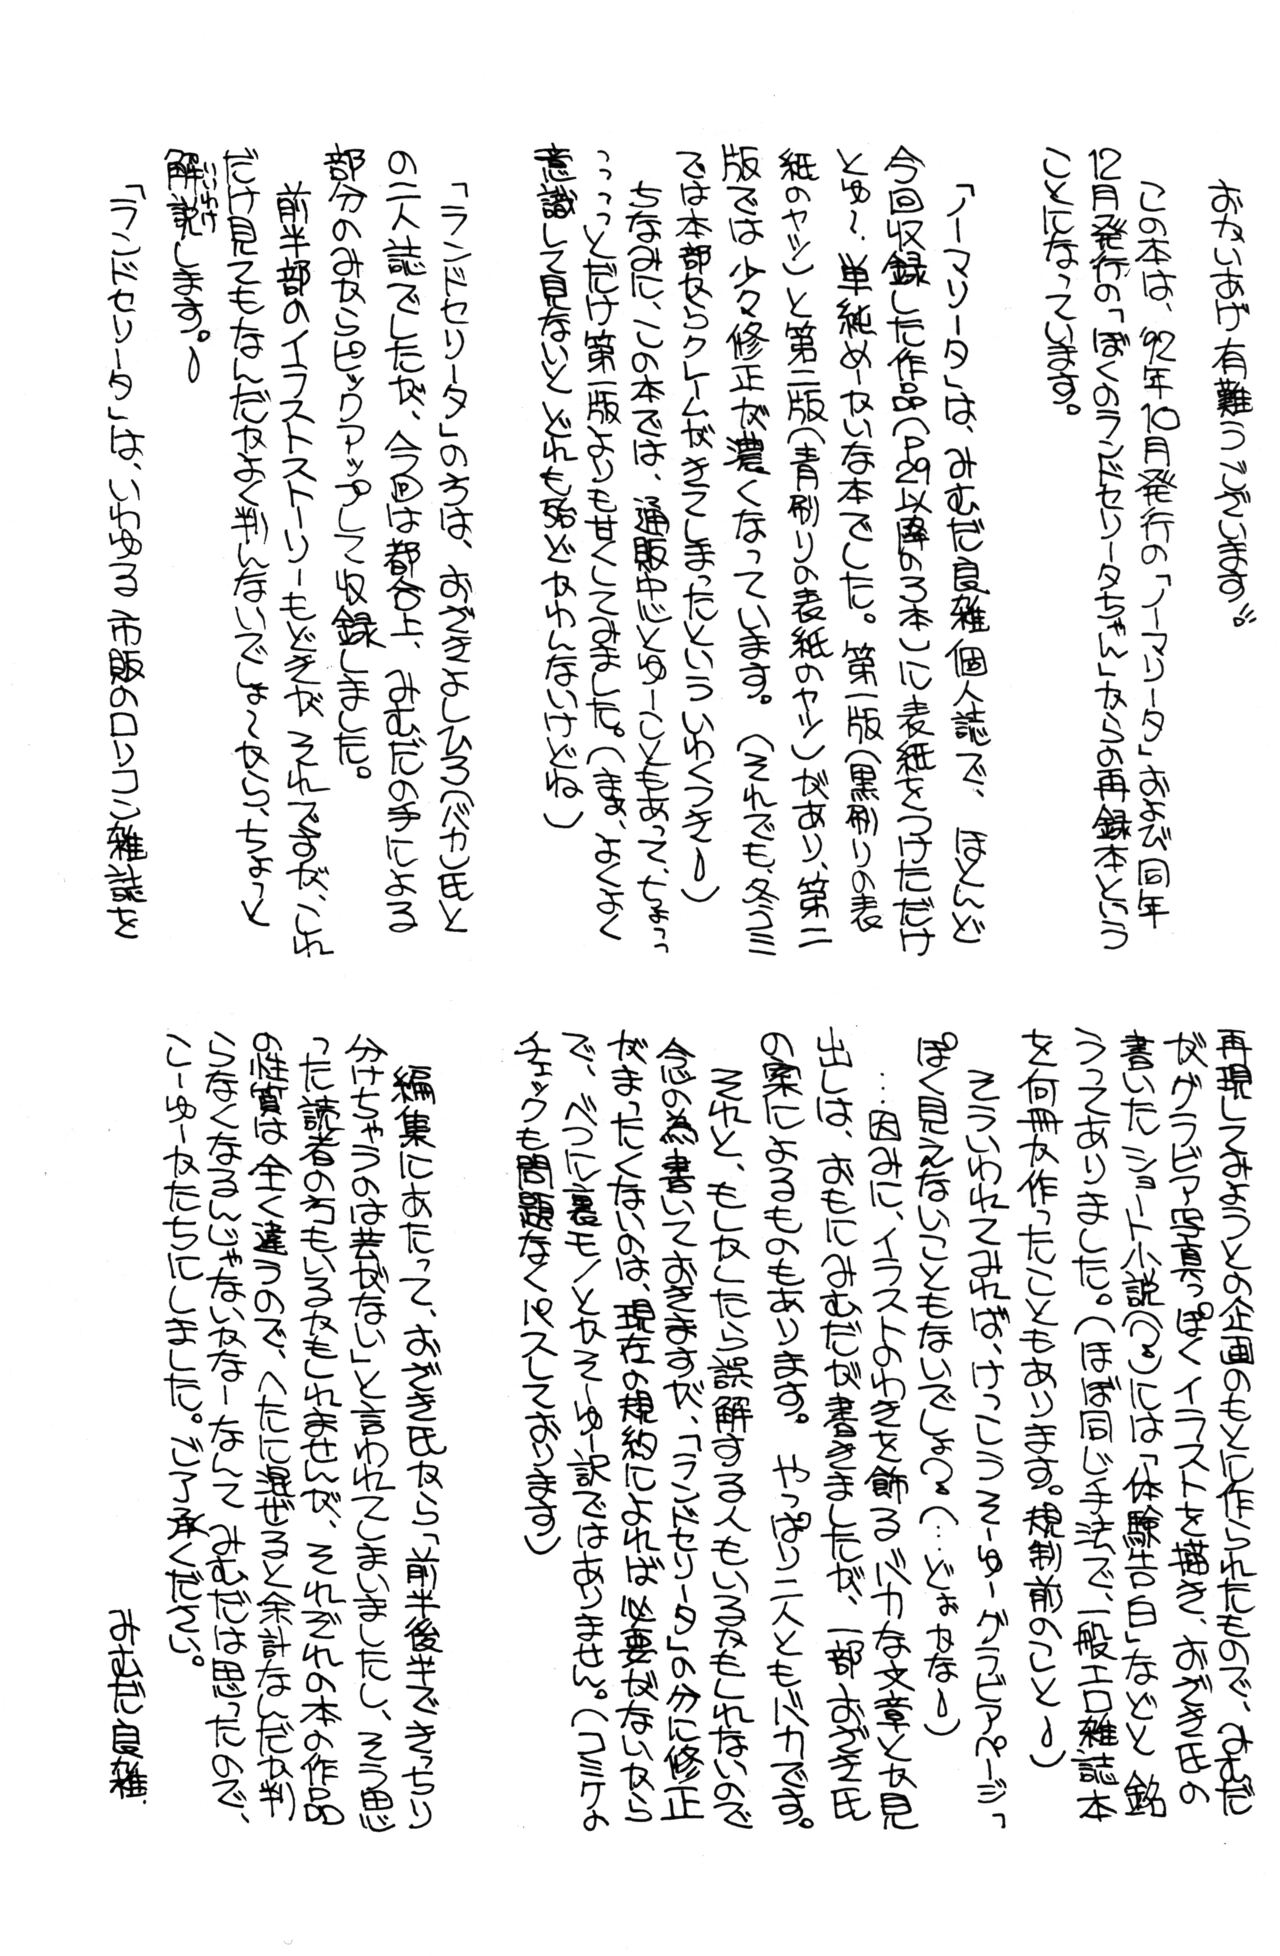 おかいあげ有難うございます。
この本は、'92年10月発行の「ノーマリータ」および同年
12月発行の「ぼくのランドセリータちゃん」からの再録本という
ことになっています。
「ノーマリータ」は、みむだ良雑個人誌で、ほとんど
今回収録した作品(P29以降の3本)に表紙をつけただけ
とゆ〜、単純めーかいな本でした。第一版(黒刷りの表
紙のヤツ)と第二版(青刷りの表紙のヤツ)があり、第二
版では少々修正が濃くなっています。(それでも、冬コミ
では本部からクレームがきてしまったといういわくつき)
ちなみに、この本では、通販中心とゆーこともあって、ちょっっ
っっっとだけ第一版よりも甘くしてみました。(まぁ、よくよく
意識して見ないとどれも殆どかわんないけどね)
「ランドセリータ」のろは、おざきよしひろ(バカ)氏と
の二人誌でしたが、今回は都合上、みむだの手による
部分のみからピックアップして収録しました。
前半部のイラストストーリーもどきが それですが、これ
だけ見てもなんだかよく判んないでしょ〜から、ちょっと
解説します。
いいわけ
「ランドセリータ」は、いわゆる市販のロリコン雑誌を
再現してみようとの企画のもとに作られたもので、みむだ
がグラビア写真っぽくイラストを描き、おざき氏の
書いたショート小説(?)には「体験告白」などと 銘
うってありました。(ほぼ同じ手法で、一般エロ雑誌本
を何冊か作ったこともあります。規制前のこと)
そういわれてみれば、けっこうそーゆーグラビアページっ
ぽく見えないこともないでしょ?(…どぉかな)
…因みに、イラストのわきを飾るバカな文章とか見
出しは、おもにみむだが書きましたが、一部おざき氏
の案によるものもあります。 やっぱり二人ともバカです。
それと、もしかしたら誤解する人もいるかもしれないので
念の為書いておきますが、「ランドセリータ」の分に修正
がまったくないのは、現在の規約によれば必要がないから
で、べつに裏モノとかそーゆー訳ではありません。(コミケの
チェックも問題なくパスしております)
編集にあたって、おざき氏から「前半後半できっちり
分けちゃうのは芸がない」と言われてしまいましたし、そう思
った読者の方もいるかもしれませんが、それぞれの本の作品
の性質は全く違うので、へたに混ぜると余計なんだか判
らなくなるんじゃないかなーなんて みむだは思ったので、
こーゆーかたちにしました。ご了承ください。
みむだ良雑.